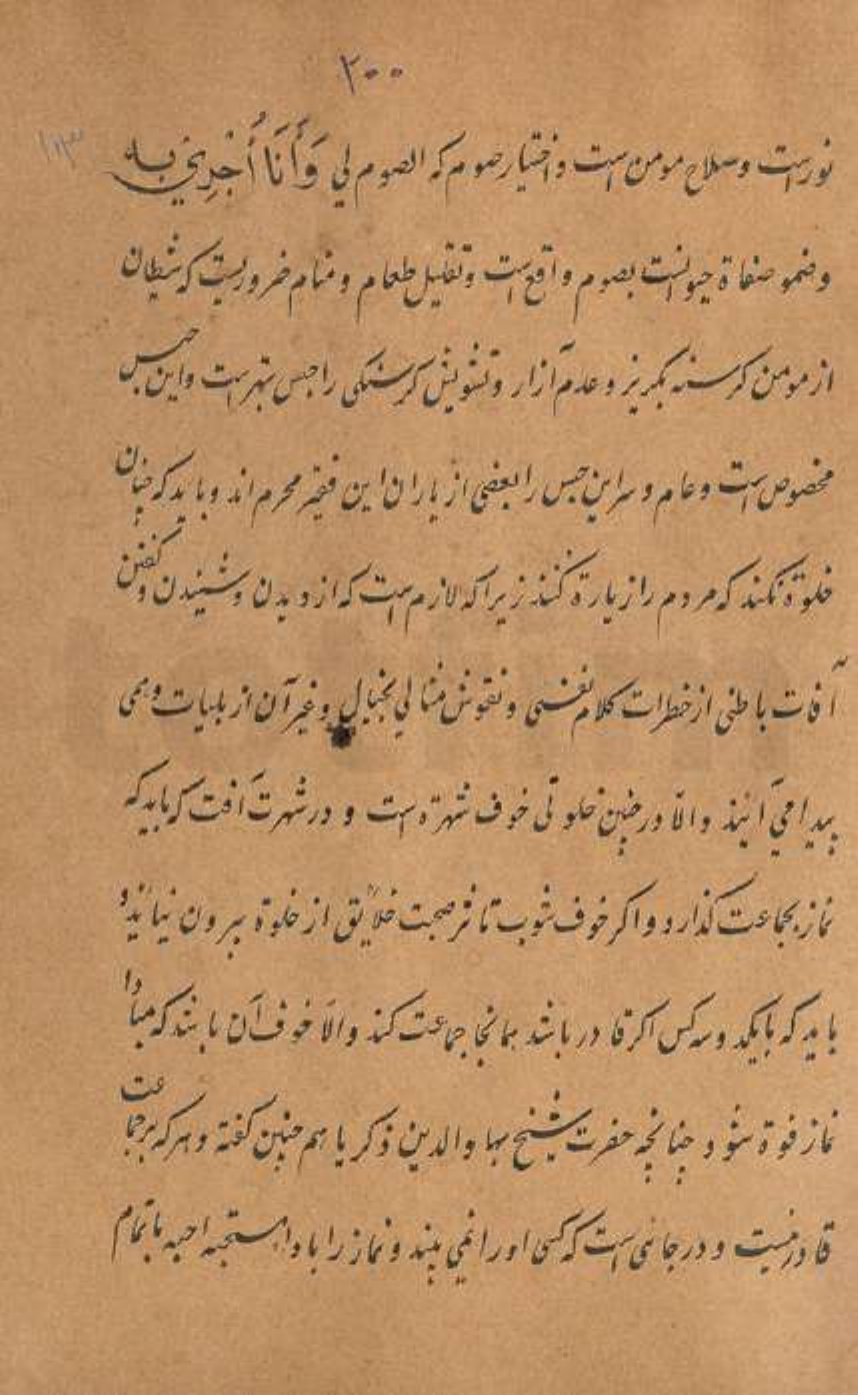 ۲۰۰
۱۳
نور است و سلاح مومن است و اختیار صوم که الصوم لي وَأَنَا أُجْزِيْ بِهِ
و ضمو صفاة حیوانست بصوم واقع است و تقلیل طعام و منام ضروریست که شیطان
از مومن کرسنه بکریزد و عدم آزار و تشویش کرسنکی را حبس بهتر است و این حبس
مخصوص است و عام و سر این حبس را بعضی از یاران این فقیر محرم اند و باید که چنان
خلوة نکند که مردم را زیارة کنند زیرا که لازم است که از دیدن و شنیدن و کفتن
آفات باطنی از خطرات کلام نفسی و نقوش مثالي بخیال و غیر آن از بلیات وهمی
پیدا مي آیند والّا در چنین خلوتی خوف شهرة است و در شهرت آفت که باید که
نماز بجماعت کذارد و اکر خوف تا ثر صحبت خلایق از خلوة بیرون نیاید و
باید که با یکد و سه کس اکر قادر باشد همانجا جماعت کند والّا خوف آن باشد که مبادا
نماز فوة شود چنانچه حضرت شیخ بهاوالدین ذکریا هم چنین کفته و هر که بر جماعت
قادر نیست و در جائی است که کسی او را نمي بیند و نماز را با و احبه با تمام